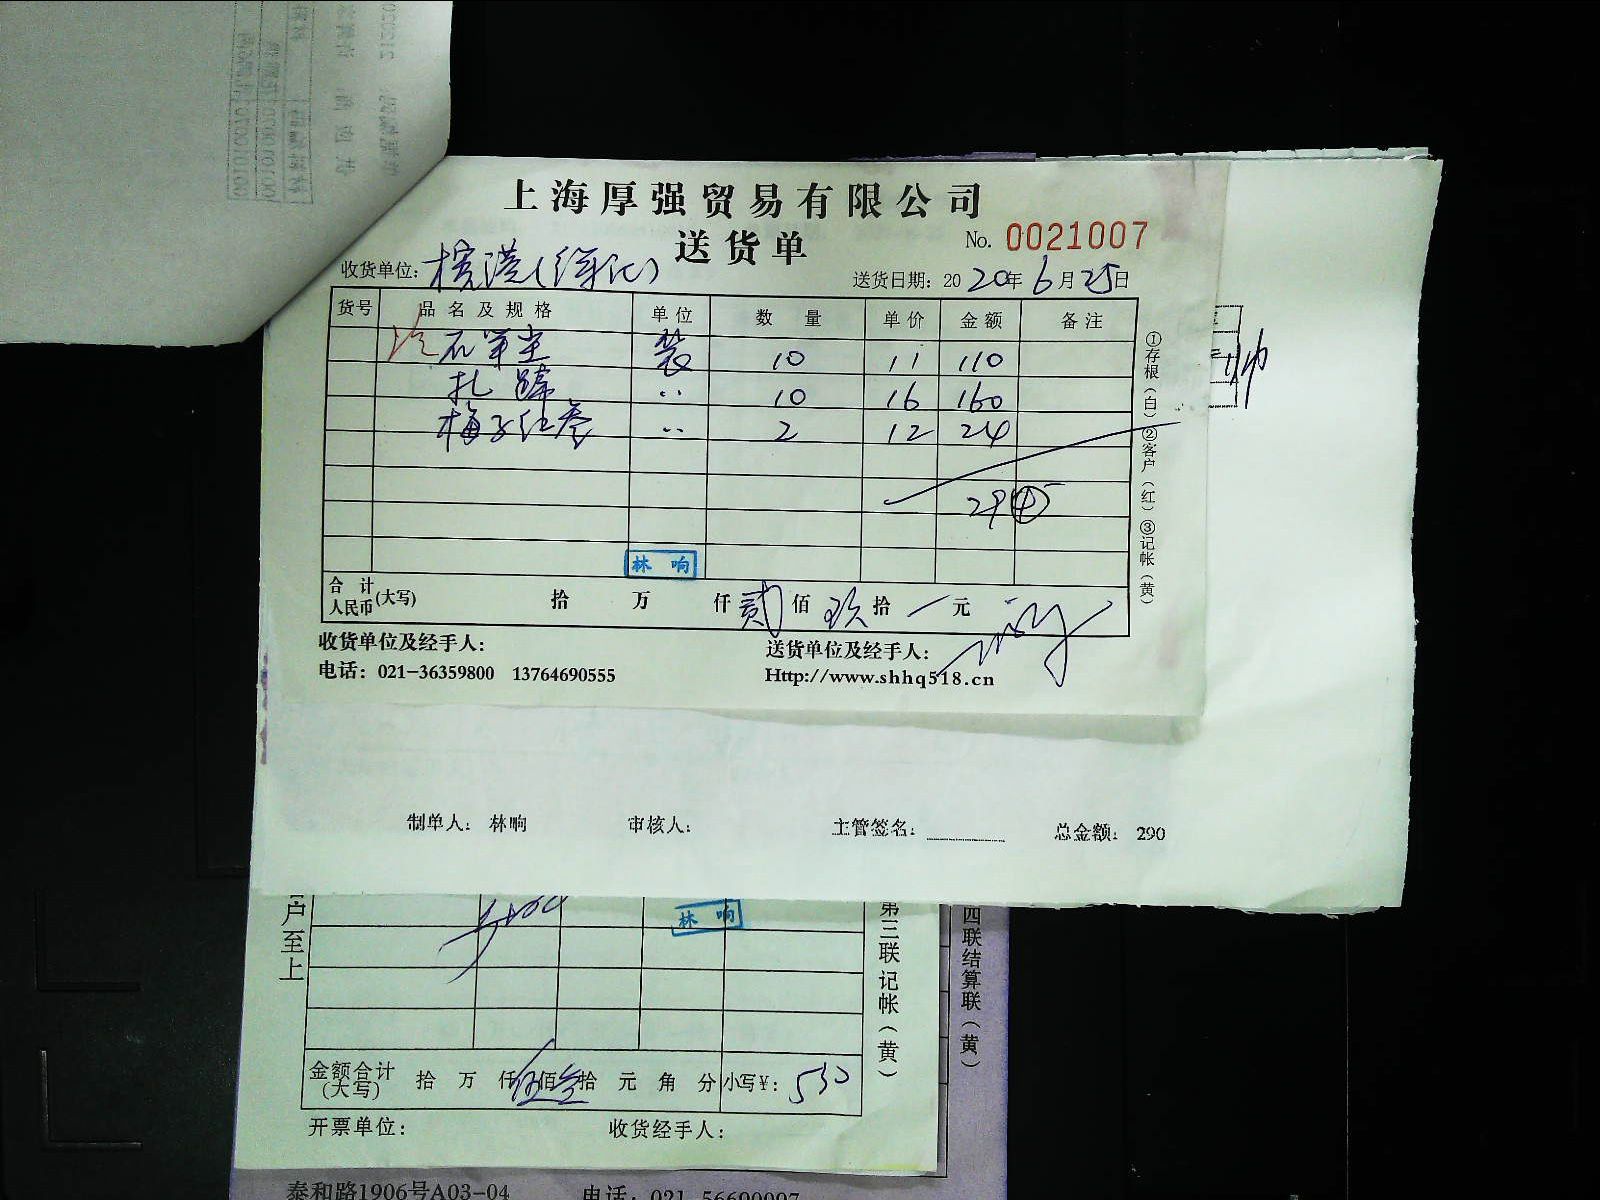 上海厚强贸易有限公司
送货单
No. 0021007
收货单位:
送货日期: 2020年6月25日
货号 品名及规格 单位 数量 单价 金额 备注
10 11 110
扎蹄 〃 10 16 160
梅子红参 〃 2 12 24
294
林响
合计人民币(大写) 拾 万 仟 贰佰 玖拾 元
①存根(白)②客户(红)③记帐(黄)
收货单位及经手人:
送货单位及经手人:
电话: 021-36359800 13764690555
Http://www.shhq518.cn
制单人: 林响 审核人: 主管签名: 总金额: 290
户至上
林响
第三联记帐(黄)
四联结算联(黄)
金额合计(大写) 拾 万 仟 伍佰叁拾 元 角 分 小写¥: 530
开票单位:
收货经手人:
泰和路1906号A03-04